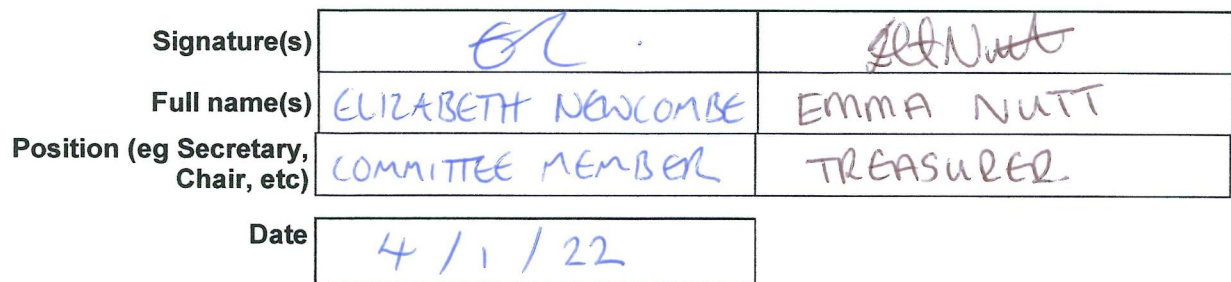 Signature(s)
Full name(s) ELIZABETH NEWCOMBE EMMA NUTT
Position (eg Secretary, Chair, etc) COMMITTEE MEMBER TREASURER
Date 4 / 1 / 22